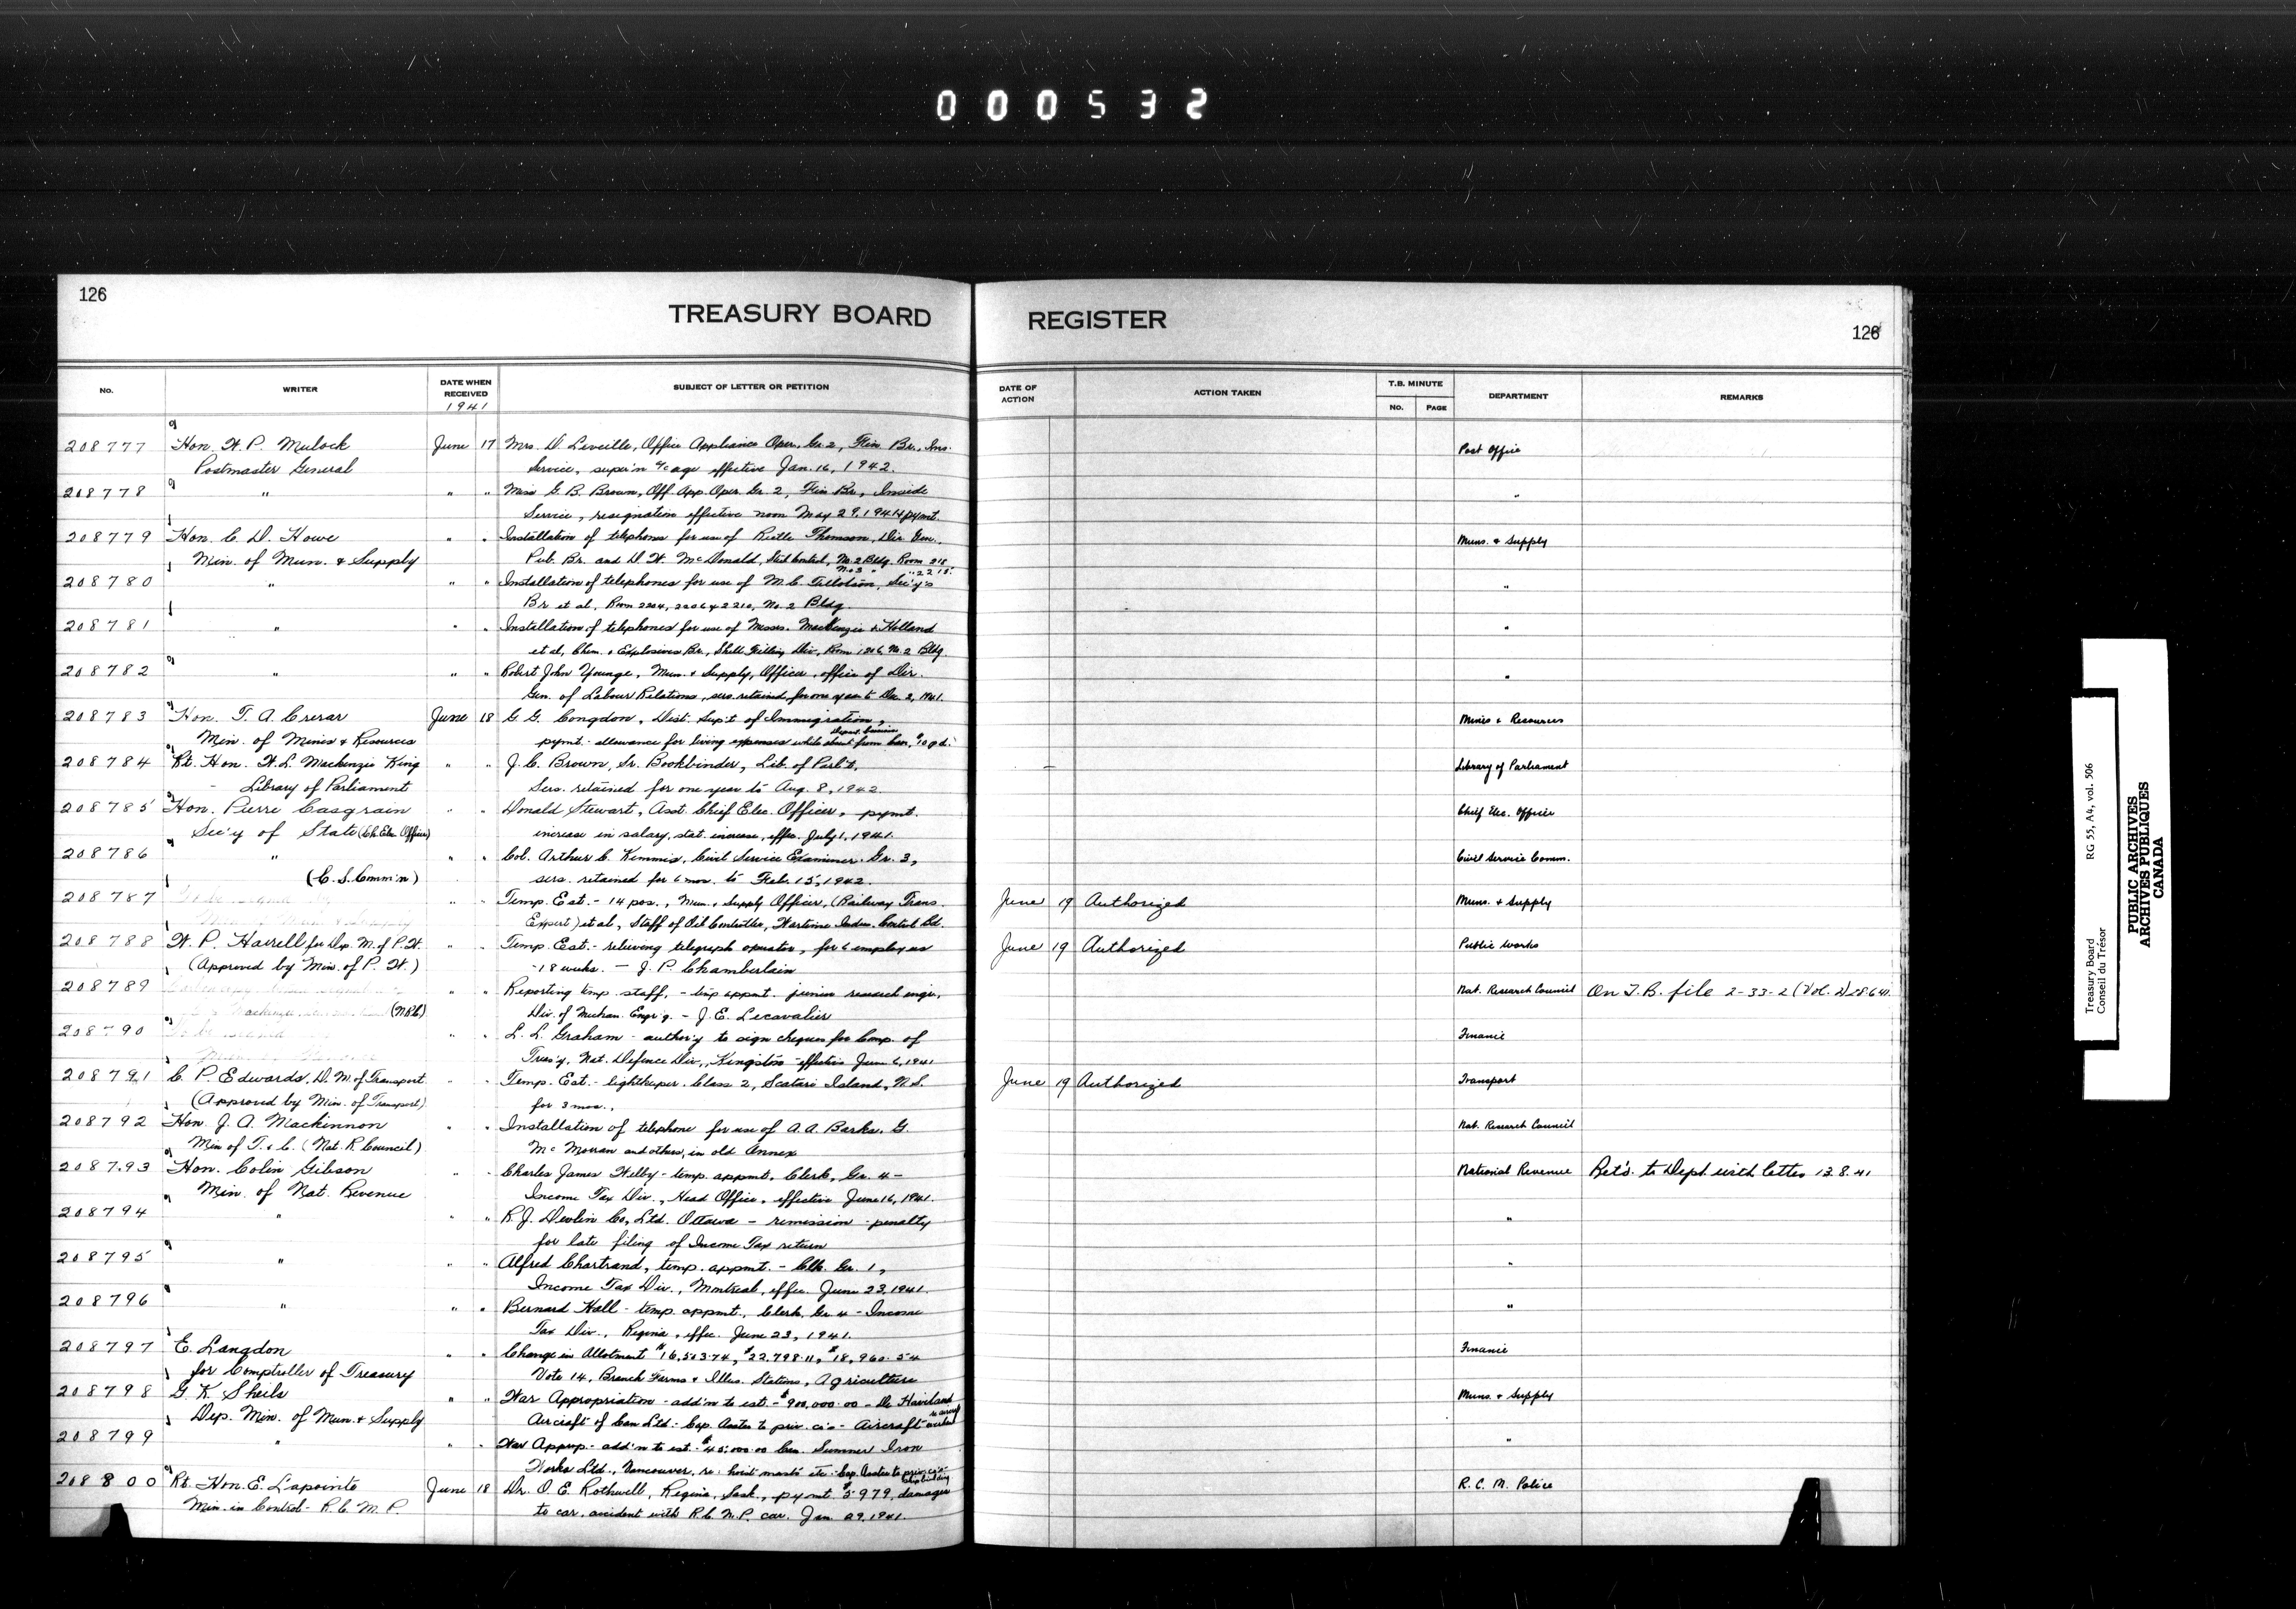 000532
126
TREASURY BOARD REGISTER
126
NO. WRITER DATE WHEN RECEIVED 1941 SUBJECT OF LETTER OR PETITION DATE OF ACTION ACTION TAKEN T.B. MINUTE NO. PAGE DEPARTMENT REMARKS
208777 Hon. W. P. Mulock June 17 Mrs. D. Leveille, Office Appliance Oper. Gr. 2, Fin. Br., Ins. Post Office
Postmaster General Service, super'n a/c age effective Jan. 16, 1942.
208778 " " " Miss G. B. Brown, Off. App. Oper. Gr. 2, Fin. Br., Inside "
Service, resignation effective noon May 29, 1941
208779 Hon. C. D. Howe " " Installation of telephones for use of Thomson, Dir. Gen. Muns. & Supply
Min. of Mun. & Supply Pub. Br. and D. W. McDonald, Steel Control, No. 2 Bldg. Room 218
208780 " " " Installation of telephones for use of M. C. Tillotson, Sec'y's "
Br. et al, Room 2204, 2206 & 2210, No. 2 Bldg.
208781 " " " Installation of telephones for use of Messrs. MacKenzie & Holland "
et al, Chem. & Explosives Br., Shell Filling Div., Room 1206, No. 2 Bldg.
208782 " " " Robert John Younge, Mun. & Supply, Officer, office of Dir. "
Gen. of Labour Relations, sers. retained for one year to Dec. 2, 1941.
208783 Hon. T. A. Crerar June 18 G. G. Congdon, Dist. Sup't of Immigration, Mines & Resources
Min. of Mines & Resources pymt. - allowance for living expenses while absent from
208784 Rt. Hon. W. L. Mackenzie King " " J. C. Brown, Sr. Bookbinder, Lib. of Parl't. Library of Parliament
- Library of Parliament Sers. retained for one year to Aug. 8, 1942.
208785 Hon. Pierre Casgrain " " Donald Stewart, Asst. Chief Elec. Officer, pymt. Chief Elec. Officer
Sec'y of State (Ch. Elec. Officer) increase in salary, stat. increase, effec. July 1, 1941.
208786 " " " Col. Arthur C. Kemmis, Civil Service Examiner Gr. 3, Civil Service Comm.
(C. S. Comm'n) sers. retained for 6 mos. to Feb. 15, 1942.
208787 " " Temp. Est. - 14 pos., Mun. & Supply Officer, (Railway Trans. June 19 Authorized Muns. & Supply
Expert) et al, Staff of Oil Controller, Wartime Indus. Control Bd.
208788 W. P. Harrell for Dep. M. of P. W. " " Temp. Est. - relieving telegraph operator, for 6 employees June 19 Authorized Public Works
(Approved by Min. of P. W.) - 18 weeks. - J. P. Chamberlain
208789 " " Reporting temp. staff, - temp appmt. junior research engr., Nat. Research Council On T.B. file 2-33-2 (Vol. 2) 28.6.41.
(NRC) Div. of Mechan. Engr'g. - J. E. Lecavalier
208790 L. L. Graham - author'y to sign cheques for Comp. of Finance
Treas'y, Nat. Defence Div., Kingston - effective June 6, 1941
208791 C. P. Edwards, D. M. of Transport " " Temp. Est. - lightkeeper Class 2, Scatari Island, N.S. June 19 Authorized Transport
(Approved by Min. of Transport) for 3 mos.,
208792 Hon. J. A. Mackinnon " " Installation of telephone for use of A. A. Barks, G. Nat. Research Council
Min of T. & C. (Nat. R. Council) and others, in old Annex
208793 Hon. Colin Gibson " " Charles James Welby - temp. appmt. Clerk, Gr. 4 - National Revenue Ret'd. to Dept. with letter 13.8.41
Min. of Nat. Revenue Income Tax Div., Head Office, effective June 16, 1941.
208794 " " " R. J. Devlin Co, Ltd. Ottawa - remission - penalty "
for late filing of Income Tax return
208795 " " " Alfred Chartrand, temp. appmt. - Clk. Gr. 1, "
Income Tax Div., Montreal, effec. June 23, 1941.
208796 " " " Bernard Hall - temp. appmt. Clerk, Gr. 4 - Income "
Tax Div., Regina, effec. June 23, 1941.
208797 E. Langdon " " Change in Allotment $16,503.74, $22,798.11, $18,960.54 Finance
for Comptroller of Treasury Vote 14, Branch Farms & Illus. Stations, Agriculture
208798 G. K. Sheils " " War Appropriation - add'n to est. - $900,000.00 - De Haviland Muns. & Supply
Dep. Min. of Mun. & Supply Aircraft of Can Ltd. - Cap. Asstce to priv. co's - Aircraft
208799 " " " War Approp. - add'n to est. - $45,000.00 Sumner Iron "
Works Ltd., Vancouver, re: hoist masts etc. - Cap. Asstce to priv. co's - Shipbuilding
208800 Rt. Hon. E. Lapointe June 18 Dr. O. E. Rothwell, Regina, Sask., pymt. $59.79, damages R. C. M. Police
Min. in Control - R. C. M. P. to car, accident with R. C. M. P. car, Jan. 29, 1941.
Treasury Board RG 55, A4, vol. 506
Conseil du Trésor
PUBLIC ARCHIVES
ARCHIVES PUBLIQUES
CANADA